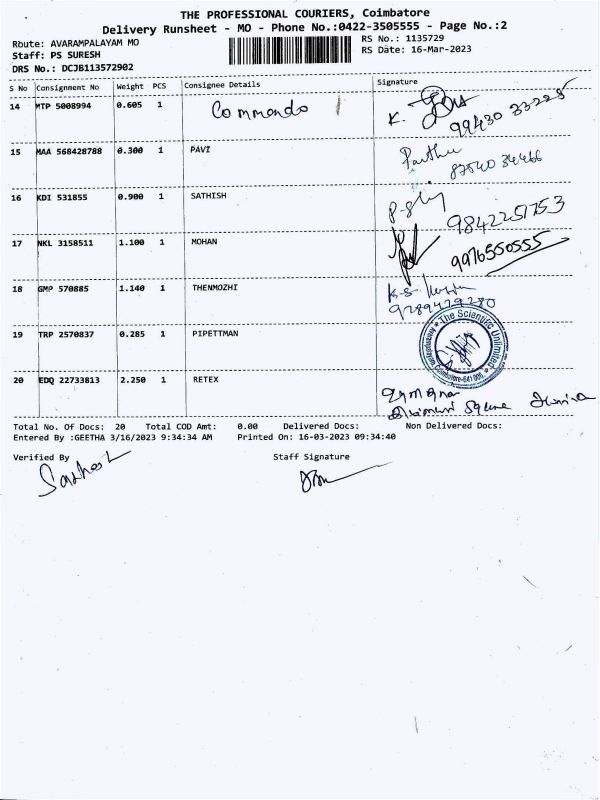 THE PROFESSIONAL COURIERS, Coimbatore
Delivery Runsheet - MO - Phone No.:0422-3505555 - Page No.:2
Route: AVARAMPALAYAM MO RS No.: 1135729
Staff: PS SURESH RS Date: 16-Mar-2023
DRS No.: DCJB113572902
S No Consignment No Weight PCS Consignee Details Signature
14 MTP 5008994 0.605 1 Commando K.
99430 33225
15 MAA 568428788 0.300 1 PAVI Parthu
87540 34466
16 KDI 531855 0.900 1 SATHISH
9842251753
17 NKL 3158511 1.100 1 MOHAN
9976550555
18 GMP 570885 1.140 1 THENMOZHI K.S.
9289429280
19 TRP 2570837 0.285 1 PIPETTMAN
The Scientific Unlimited
Coimbatore-641 006.
20 EDQ 22733813 2.250 1 RETEX
Square
Total No. Of Docs: 20 Total COD Amt: 0.00 Delivered Docs: Non Delivered Docs:
Entered By :GEETHA 3/16/2023 9:34:34 AM Printed On: 16-03-2023 09:34:40
Verified By Staff Signature